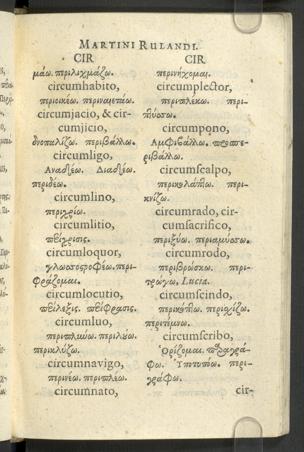 MARTINI RULANDI.
CIR
μάω. περιλιχμάζω.
circumhabito,
περιοικέω. περιναιετάω.
circumjacio, & cir-
cumjicio,
περιβάλλω.
circumligo,
Αναδέω. Διαδέω.
περιδέω.
circumlino,
περιχρίω.
circumlitio,
circumloquor,
περι-
φράζομαι.
circumlocutio,
circumluo,
περιπλύνω. περιλούω.
περικλύζω.
circumnavigo,
περινέω. περιπλέω.
circumnato,
CIR
περινήχομαι.
circumplector,
περιπλέκω. περι-
πτύσσω.
circumpono,
Αμφιβάλλω.
ριβάλλω.
circumscalpo,
περικολάπτω. περι-
κνίζω.
circumrado, cir-
cumsacrifico,
περιξύω. περιαμύσσω.
circumrodo,
περιβρώσκω. περι-
τρώγω. Lucia.
circumscindo,
περικόπτω. περισχίζω.
περιτέμνω.
circumscribo,
Ὁρίζομαι.
φω. Υποτυπόω. περι-
γράφω.
cir-